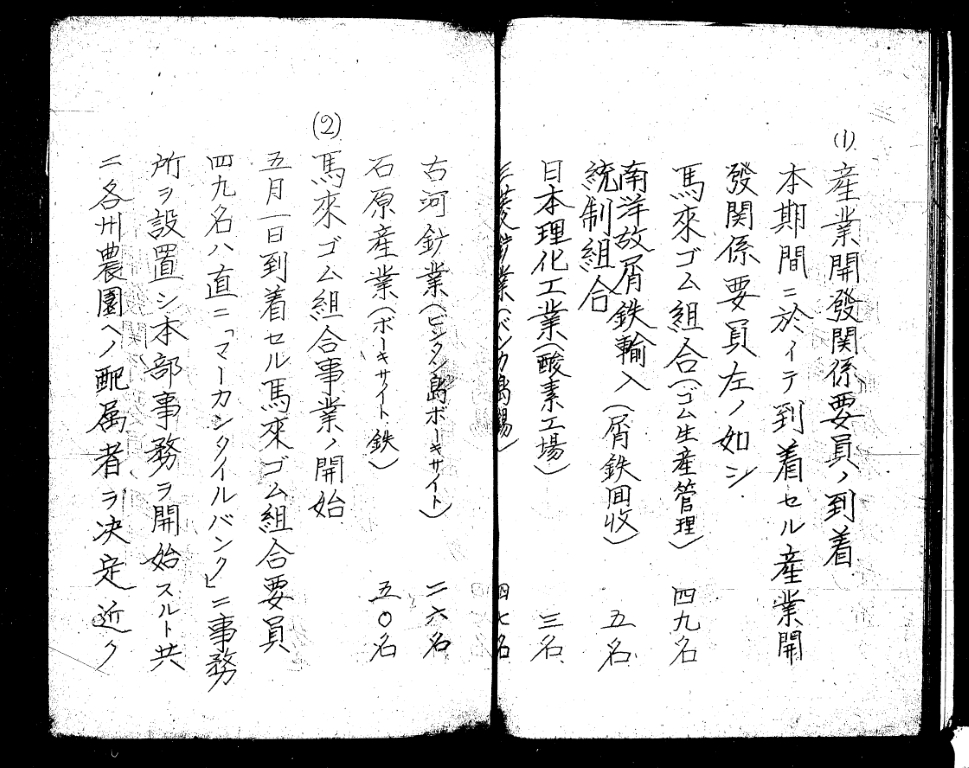 (1) 産業開發関係要員ノ到着
本期間ニ於イテ到着セル産業開
發関係要員左ノ如シ
馬來ゴム組合(ゴム生産管理) 四九名
南洋故屑鉄輸入
統制組合(屑鉄回收) 五名
日本理化工業(酸素工場) 三名
三菱鉱業(バンカ島錫) 四七名
古河鈔業(ビンタン島ボーキサイト) 二六名
石原産業(ボーキサイト、鉄) 五〇名
(2) 馬來ゴム組合事業ノ開始
五月一日到着セル馬來ゴム組合要員
四九名ハ直ニ「マーカンタイルバンク」ニ事務
所ヲ設置シ本部事務ヲ開始スルト共
ニ各州農園ヘノ配属者ヲ決定近ク